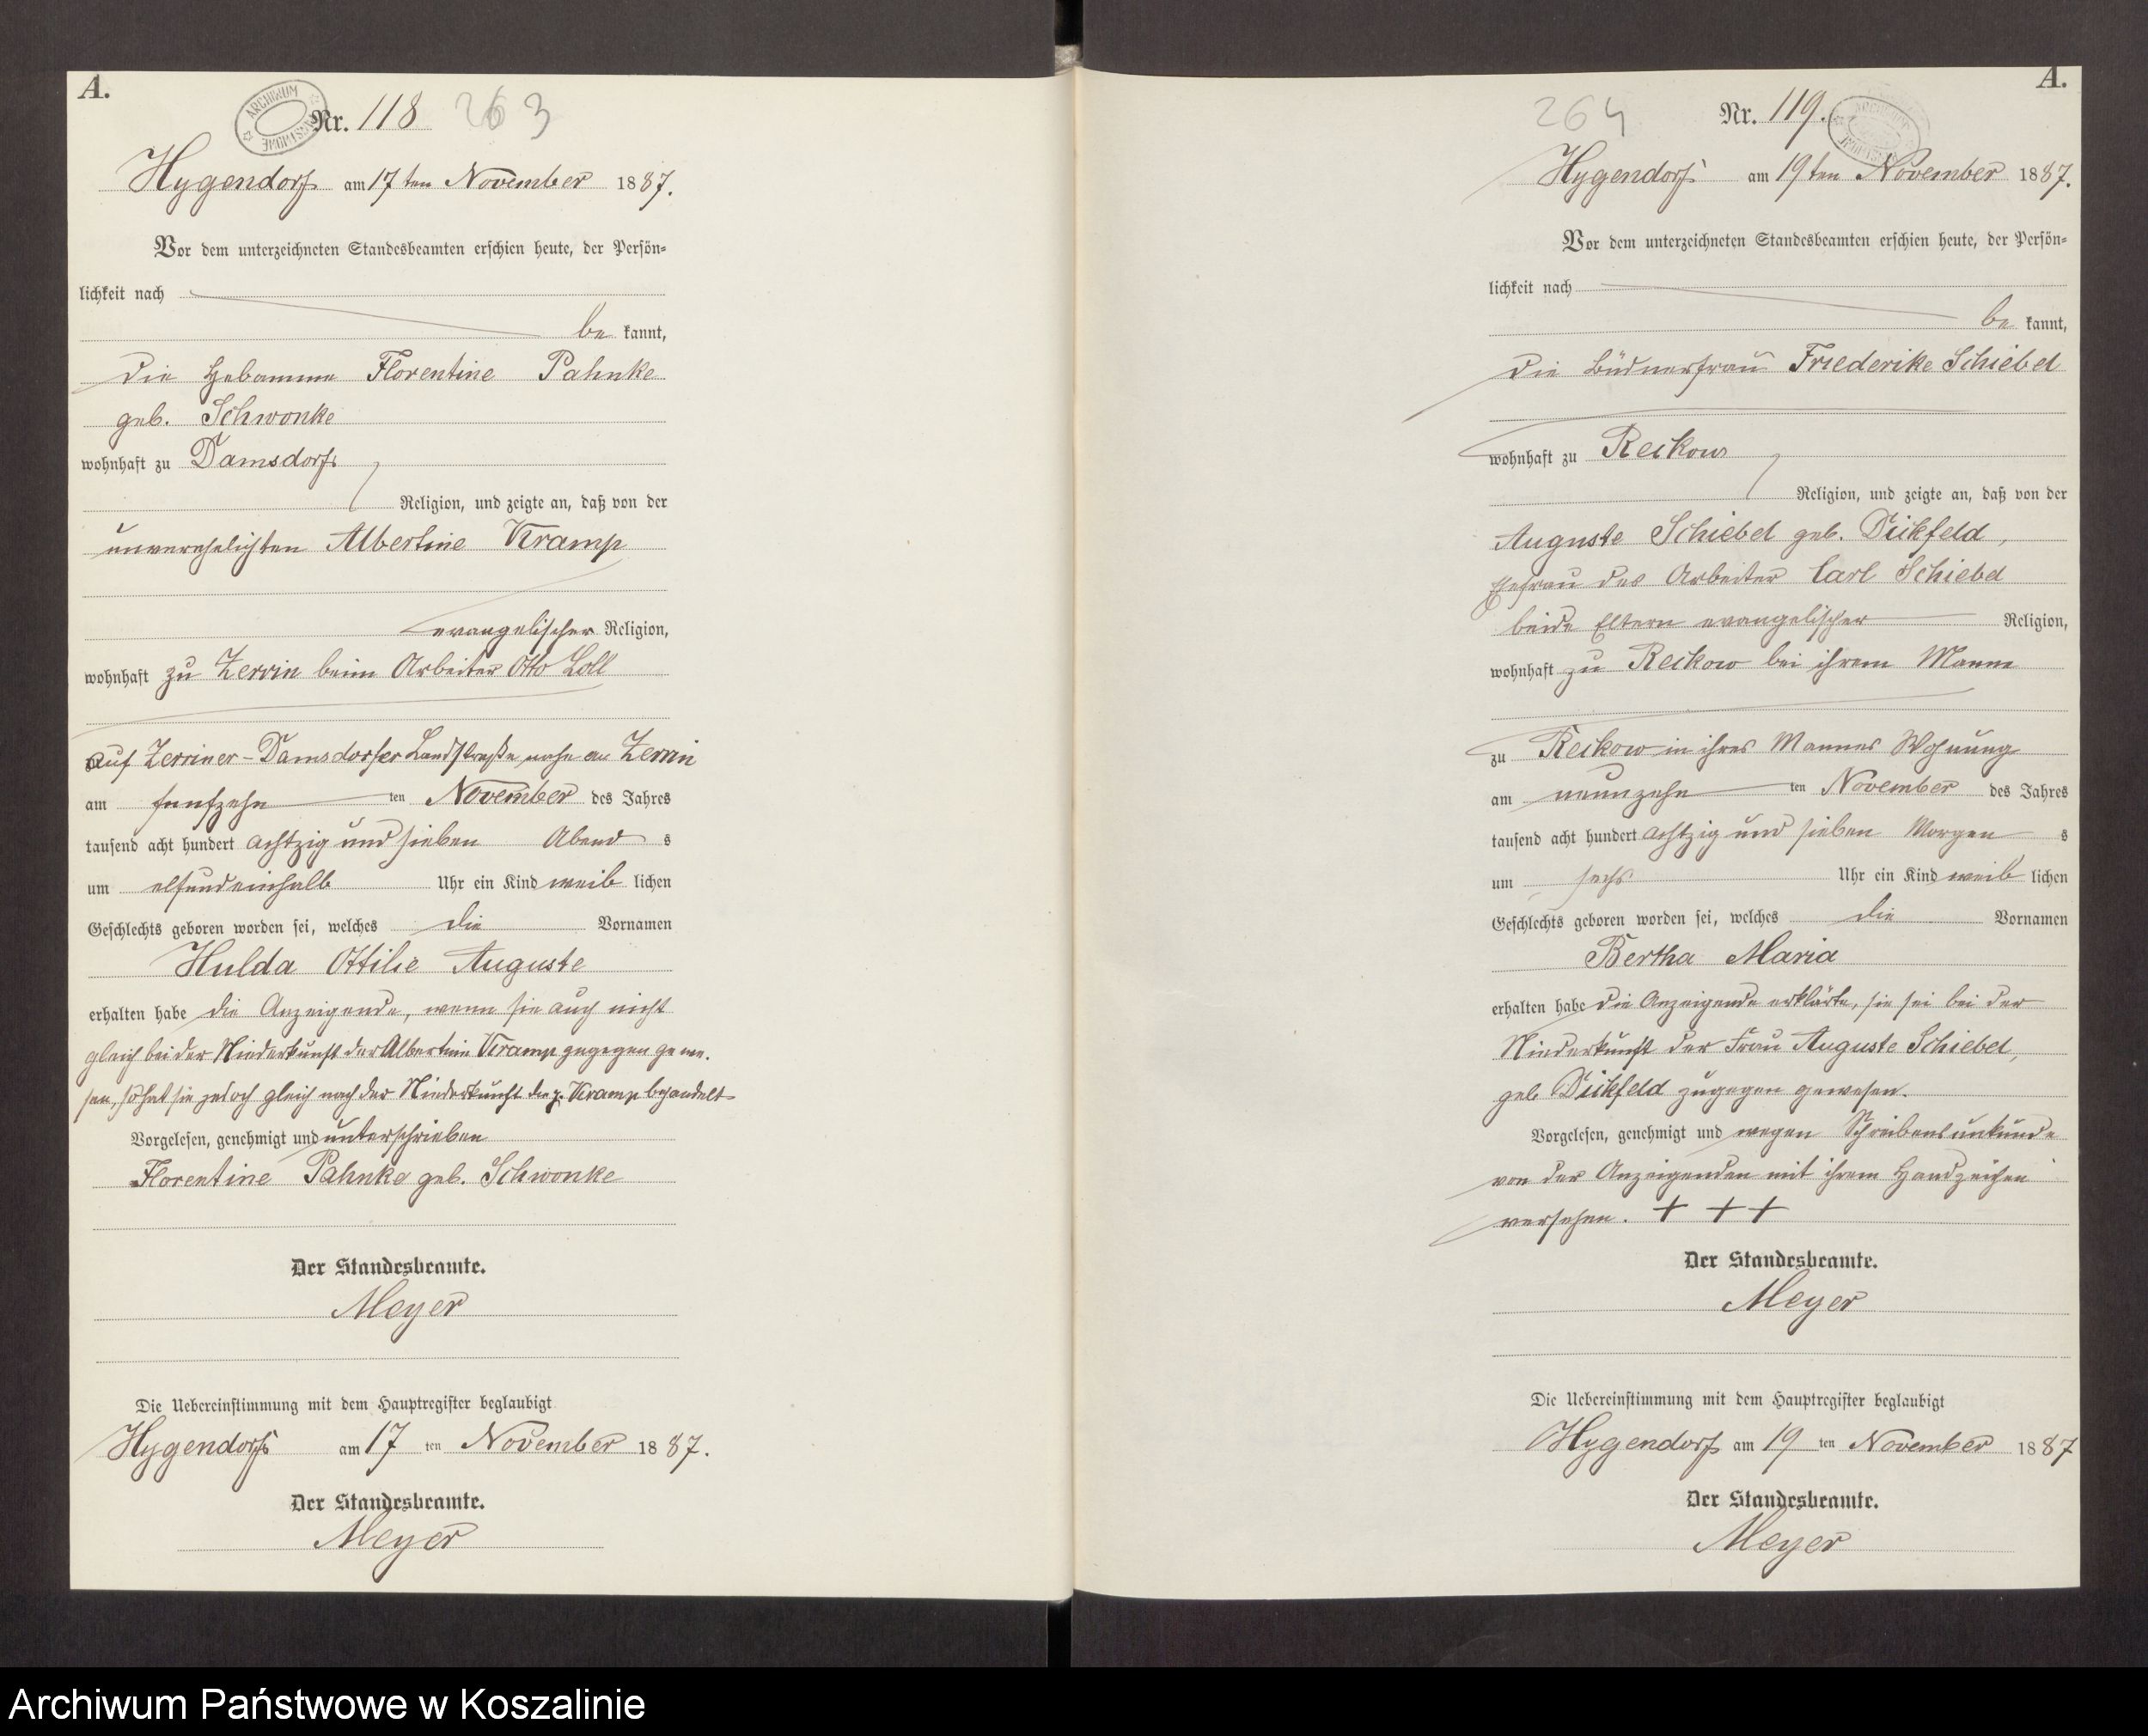 A.
ARCHIWUM PAŃSTWOWE
Nr. 118 263
Hygendorf am 17ten November 1887.
Vor dem unterzeichneten Standesbeamten erschien heute, der Persön=
lichkeit nach
be kannt,
die Hebamme Florentine Pahnke
geb. Schwonke
wohnhaft zu Damsdorf
Religion, und zeigte an, daß von der
unverehelichten Albertine Kramp
evangelischer Religion,
wohnhaft zu Zerrin beim Arbeiter Otto Loll
auf Zerriner-Damsdorfer Landstraße nahe an Zerrin
am funfzehn ten November des Jahres
tausend acht hundert achtzig und sieben Abend s
um elfundeinhalb Uhr ein Kind weib lichen
Geschlechts geboren worden sei, welches die Vornamen
Hulda Ottilie Auguste
erhalten habe die Anzeigende, wenn sie auch nicht
gleich bei der Niederkunft der Albertine Kramp gegegen gewe.
sen, so hat sie jedoch gleich nach der Niederkunft die p. Kramp behandelt
Vorgelesen, genehmigt und unterschrieben
Florentine Pahnke geb. Schwonke
Der Standesbeamte.
Meyer
Die Uebereinstimmung mit dem Hauptregister beglaubigt
Hygendorf am 17 ten November 1887.
Der Standesbeamte.
Meyer
A.
264 Nr. 119.
Hygendorf am 19ten November 1887.
Vor dem unterzeichneten Standesbeamten erschien heute, der Persön=
lichkeit nach
be kannt,
die Büdnerfrau Friederike Schiebel
wohnhaft zu Reckow
Religion, und zeigte an, daß von der
Auguste Schiebel geb. Dickfeld,
Ehefrau des Arbeiter Carl Schiebel
beide Eltern evangelischer Religion,
wohnhaft zu Reckow bei ihrem Manne
zu Reckow in ihres Mannes Wohnung
am neunzehn ten November des Jahres
tausend acht hundert achtzig und sieben Morgen s
um sechs Uhr ein Kind weib lichen
Geschlechts geboren worden sei, welches die Vornamen
Bertha Maria
erhalten habe die Anzeigende erklärte, sie sei bei der
Niederkunft der Frau Auguste Schiebel,
geb Dickfeld zugegen gewesen.
Vorgelesen, genehmigt und wegen Schreibensunkunde
von der Anzeigenden mit ihrem Handzeichen
versehen. + + +
Der Standesbeamte.
Meyer
Die Uebereinstimmung mit dem Hauptregister beglaubigt
Hygendorf am 19 ten November 1887
Der Standesbeamte.
Meyer
Archiwum Państwowe w Koszalinie